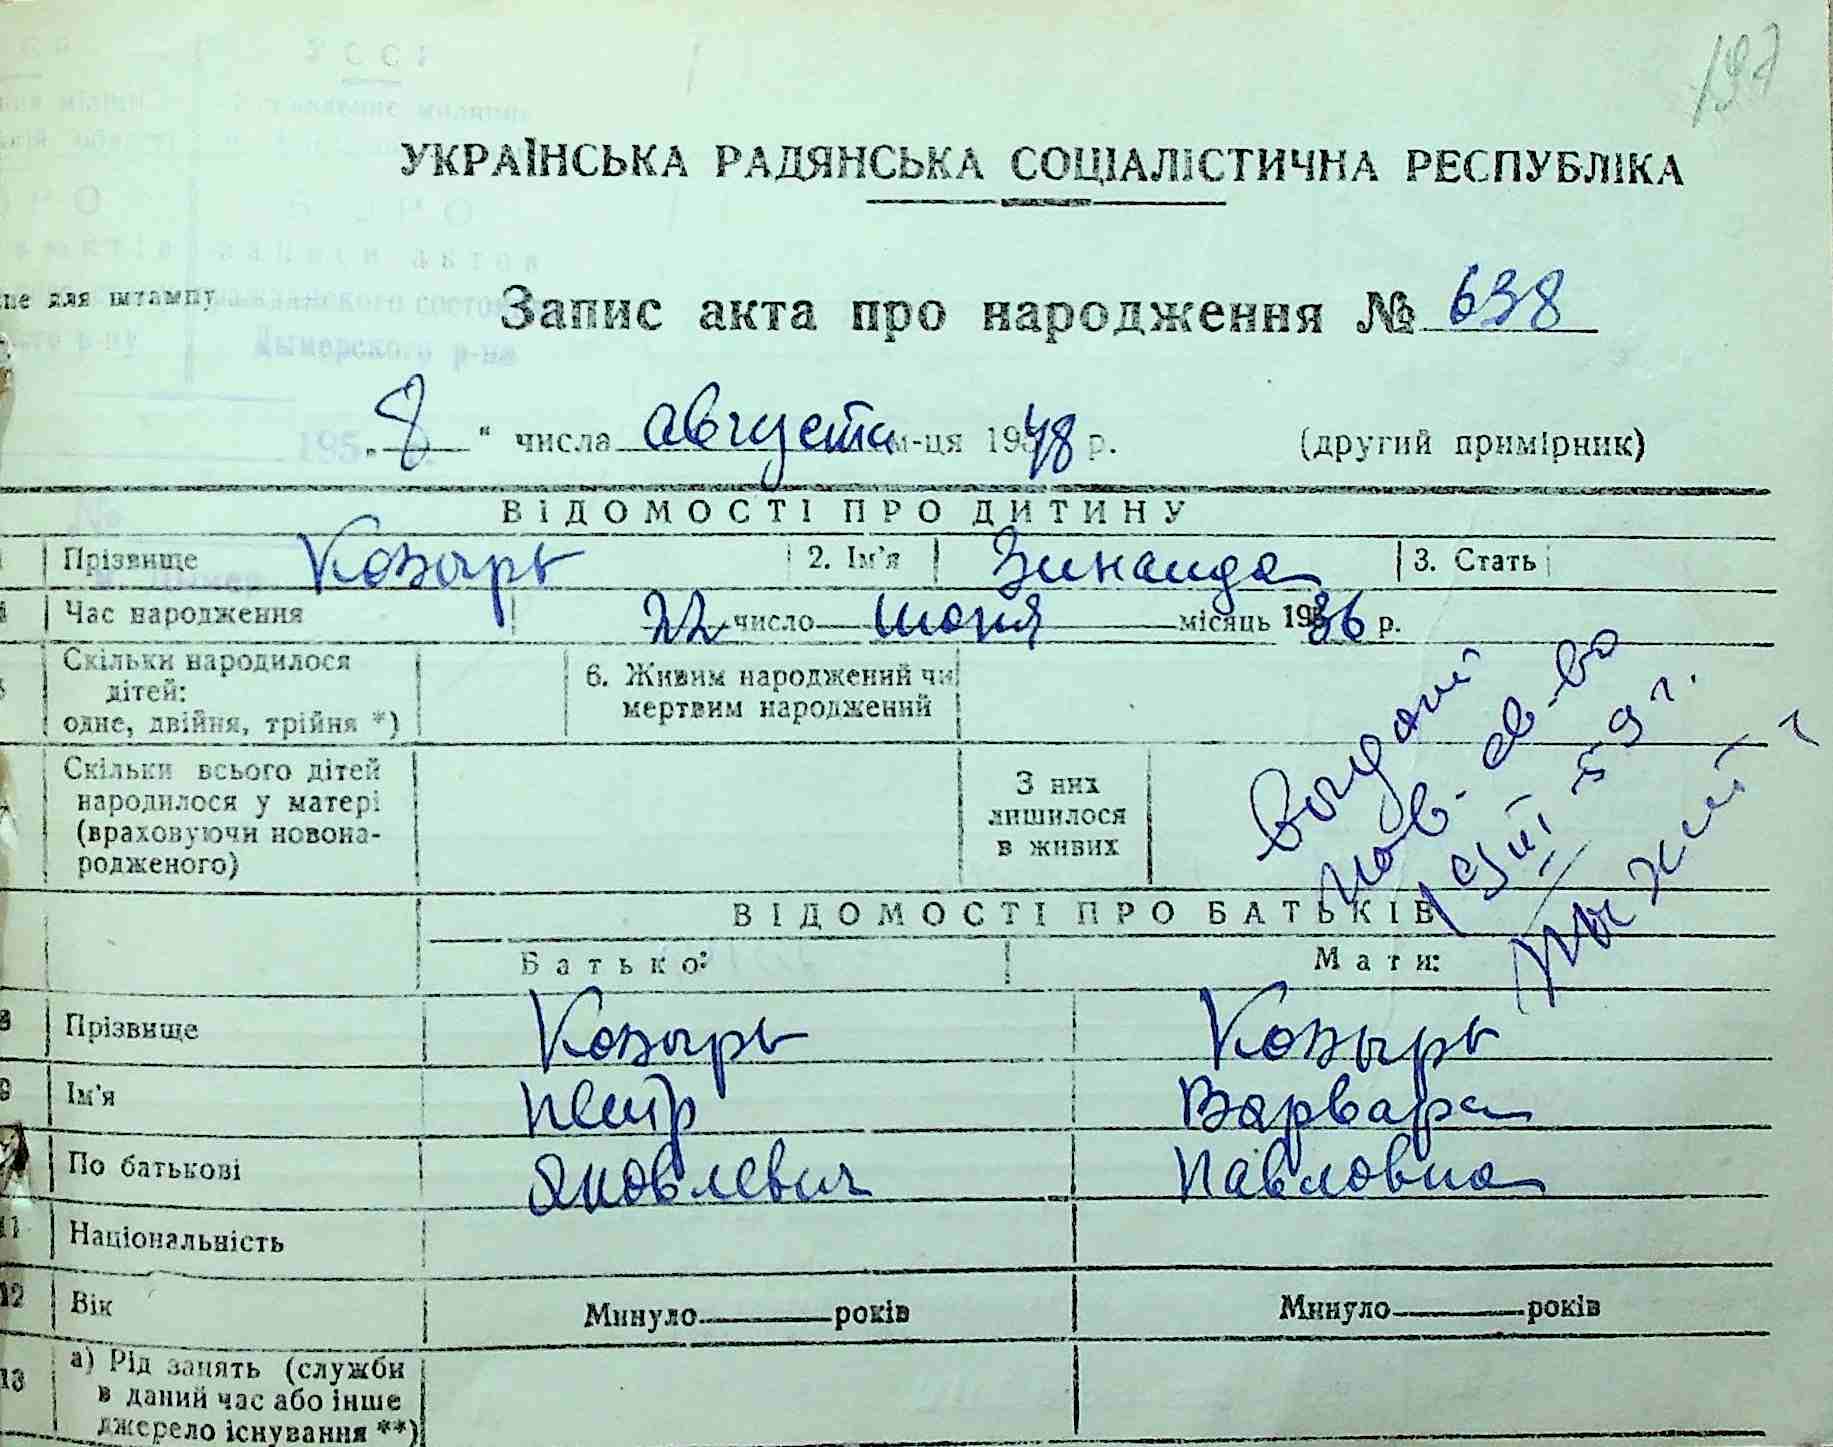 197
УКРАЇНСЬКА РАДЯНСЬКА СОЦІАЛІСТИЧНА РЕСПУБЛІКА
це для штампу
Запис акта про народження № 638
„ 8 “ числа августа м-ця 1948 р. (другий примірник)
ВІДОМОСТІ ПРО ДИТИНУ
Прізвище Козырь 2. Ім'я Зинаида 3. Стать
Час народження 22 число июня місяць 1936 р.
Скільки народилося дітей: одне, двійня, трійня *)
6. Живим народжений чи мертвим народжений
Скільки всього дітей народилося у матері (враховуючи новонародженого)
З них лишилося в живих
59 г.
ВІДОМОСТІ ПРО БАТЬКІВ
Батько: Мати:
8 Прізвище Козырь Козырь
9 Ім'я Петр Варвара
По батькові Яковлевич Павловна
11 Національність
12 Вік Минуло років Минуло років
13 а) Рід занять (служби
в даний час або інше
джерело існування **)